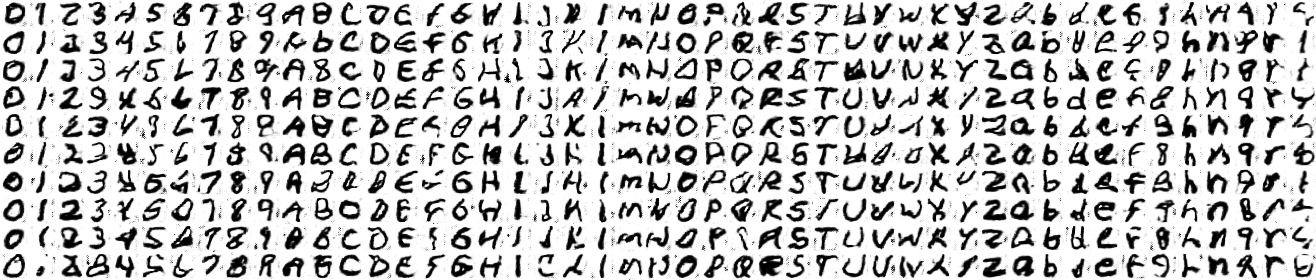 0 1 2 3 4 5 6 7 8 9 A B C D E F G H I J K l m N O P Q R S T U V W X Y Z a b d e f g h n q r t
0 1 2 3 4 5 6 7 8 9 A b C D E F G H I J K l m N O P Q R S T U V W X Y Z a b d e f g h n q r t
0 1 2 3 4 5 6 7 8 9 A B C D E F G H I J K l m N O P Q R S T U V W X Y Z a b d e f g h n q r t
0 1 2 9 4 6 6 7 8 9 A B C D E F G H I J K l m N O P Q R S T U V W X Y Z a b d e f g h n q r t
0 1 2 3 4 5 6 7 8 9 A B C D E F G H I J K l m N O P Q R S T U V W X Y Z a b d e f g h n q r t
0 1 2 3 4 5 6 7 8 9 A B C D E F G H I J K l m N O P Q R S T U V W X Y Z a b d e f g h n q r t
0 1 2 3 4 5 6 7 8 9 A B C D E F G H I J K l m N O P Q R S T U V W X Y Z a b d e f g h n q r t
0 1 2 3 4 5 6 7 8 9 A B C D E F G H I J K l m N O P Q R S T U V W X Y Z a b d e f g h n q r t
0 1 2 3 4 5 6 7 8 9 A B C D E F G H I J K l m N O P Q R S T U V W X Y Z a b d e f g h n q r t
0 . 2 8 4 5 6 7 8 9 A B C D E F G H I J K l m N O P Q R S T U V W X Y Z a b d e f g h n q r t